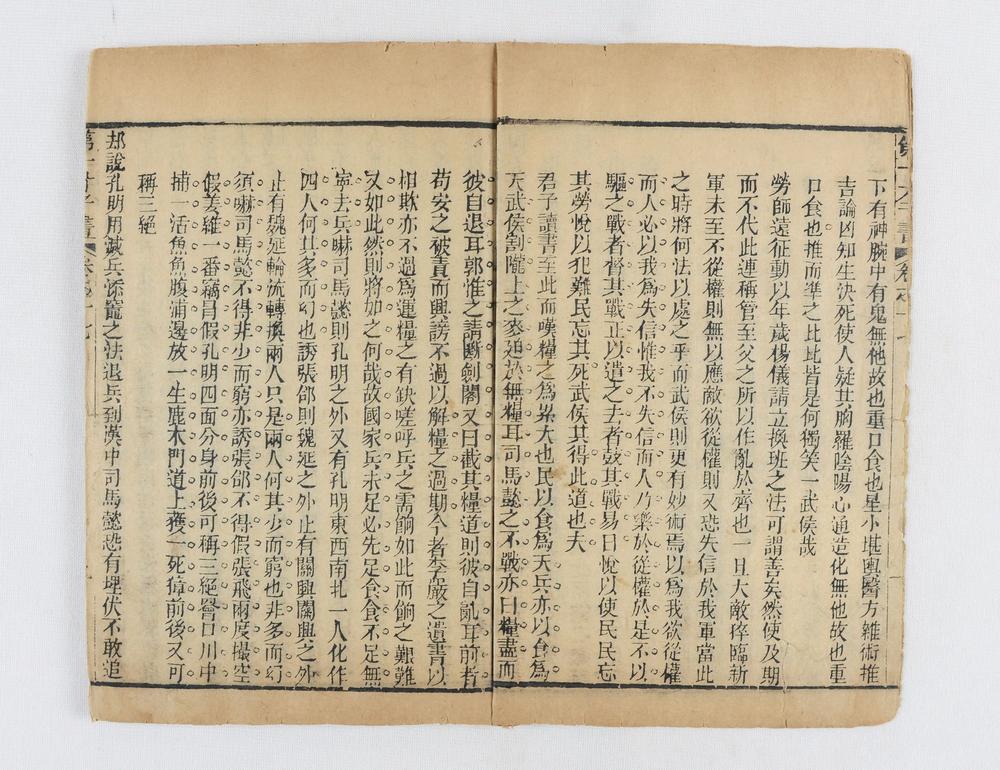 第一才子書 卷之十七
下有神腕中有鬼無他故也重口食也星小堪輿醫方雜術推
吉論凶知生決死使人疑其胸羅陰陽心通造化無他故也重
口食也推而準之比比皆是何獨笑一武侯哉
勞師遠征動以年歲楊儀請立換班之法可謂善矣然使及期
而不代此連稱管至父之所以作亂於齊也一旦大敵猝臨新
軍未至不從權則無以應敵欲從權則又恐失信於我軍當此
之時將何法以處之乎而武侯則更有妙術焉以為我欲從權
而人必以我為失信惟我不失信而人乃樂於從權於是不以
驅之戰者督其戰正以遣之去者鼓其戰易曰悅以使民民忘
其勞悅以犯難民忘其死武侯其得此道也夫
君子讀書至此而嘆糧之為累大也民以食為天兵亦以食為
天武侯割隴上之麥廹於無糧耳司馬懿之不戰亦曰糧盡而
彼自退耳郭惟之請斷劍閣又曰截其糧道則彼自亂耳前者
苟安之被責而興謗不過以解糧之過期今者李嚴之遺書以
相欺亦不過為運糧之有缺嗟呼兵之需餉如此而餉之艱難
又如此然則將如之何哉故國家兵未足必先足食食不足無
寧去兵嚇司馬懿則孔明之外又有孔明東西南扎一人化作
四人何其多而幻也誘張郃則魏延之外止有關興關興之外
止有魏延輪流轉換兩人只是兩人何其少而窮也非多而幻
須嚇司馬懿不得非少而窮亦誘張郃不得假張飛兩度撮空
假姜維一番竊冒假孔明四面分身前後可稱三絕罾口川中
捕一活魚魚腹浦邊放一生鹿木門道上獲一死獐前後又可
稱三絕
却說孔明用減兵添竈之法退兵到漢中司馬懿恐有埋伏不敢追
第一才子書 卷之十七